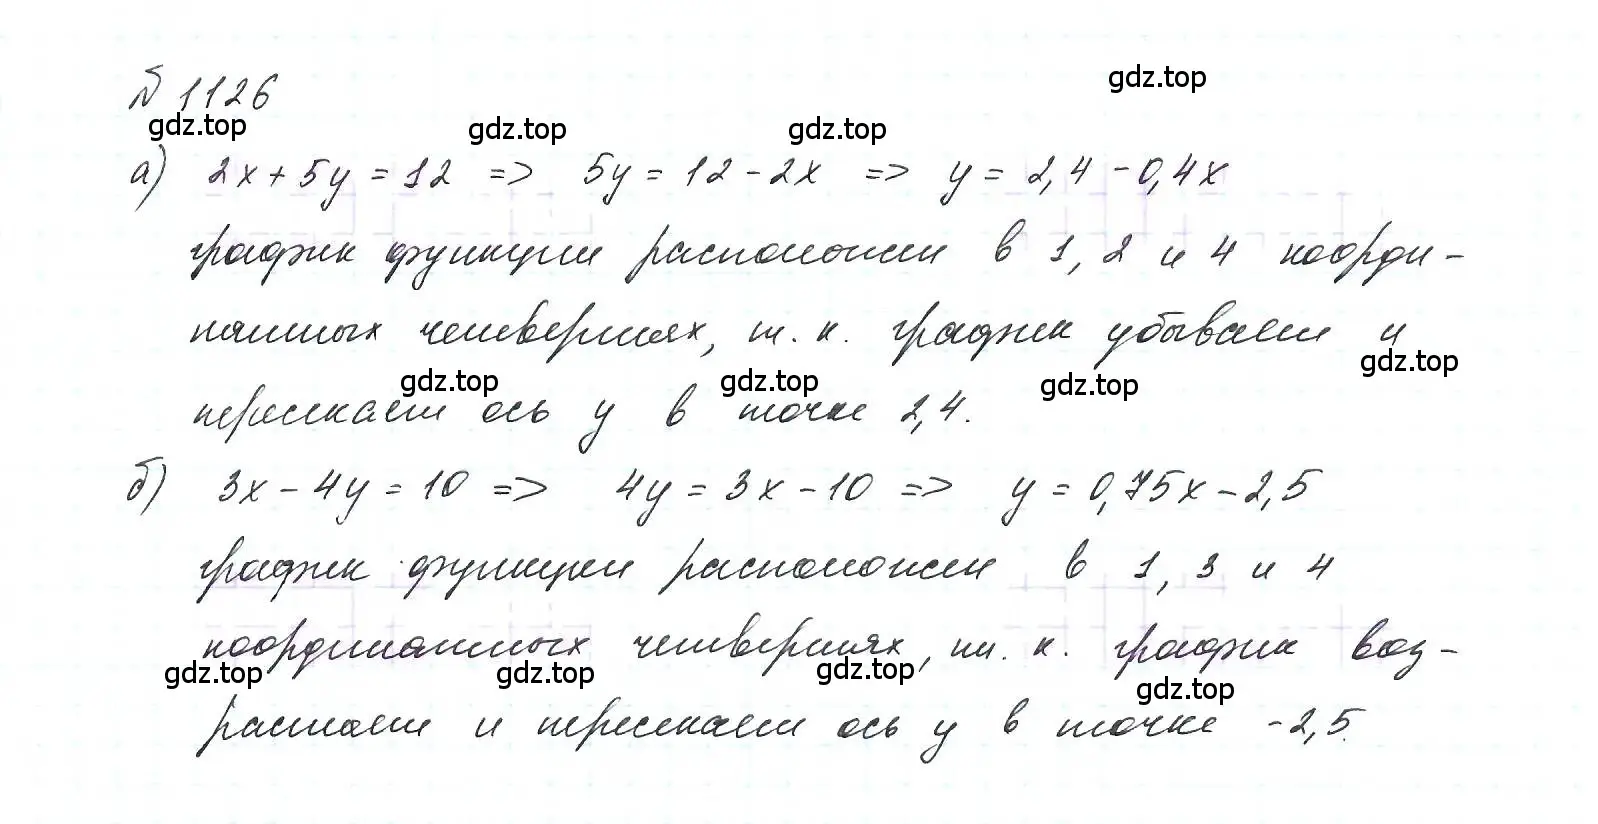 № 1126
gdz.top
gdz.top gdz.top gdz.top
а) 2x + 5y = 12 => 5y = 12 - 2x => y = 2,4 - 0,4x
график функции расположен в 1, 2 и 4 коорди-
натных четвертях, т. к. график убывает и
gdz.top
gdz.top gdz.top gdz.top
пересекает ось y в точке 2,4.
б) 3x - 4y = 10 => 4y = 3x - 10 => y = 0,75x - 2,5
график функции расположен в 1, 3 и 4
координатных четвертях, т. к. график воз-
gdz.top gdz.top gdz.top gdz.top
растает и пересекает ось y в точке -2,5.